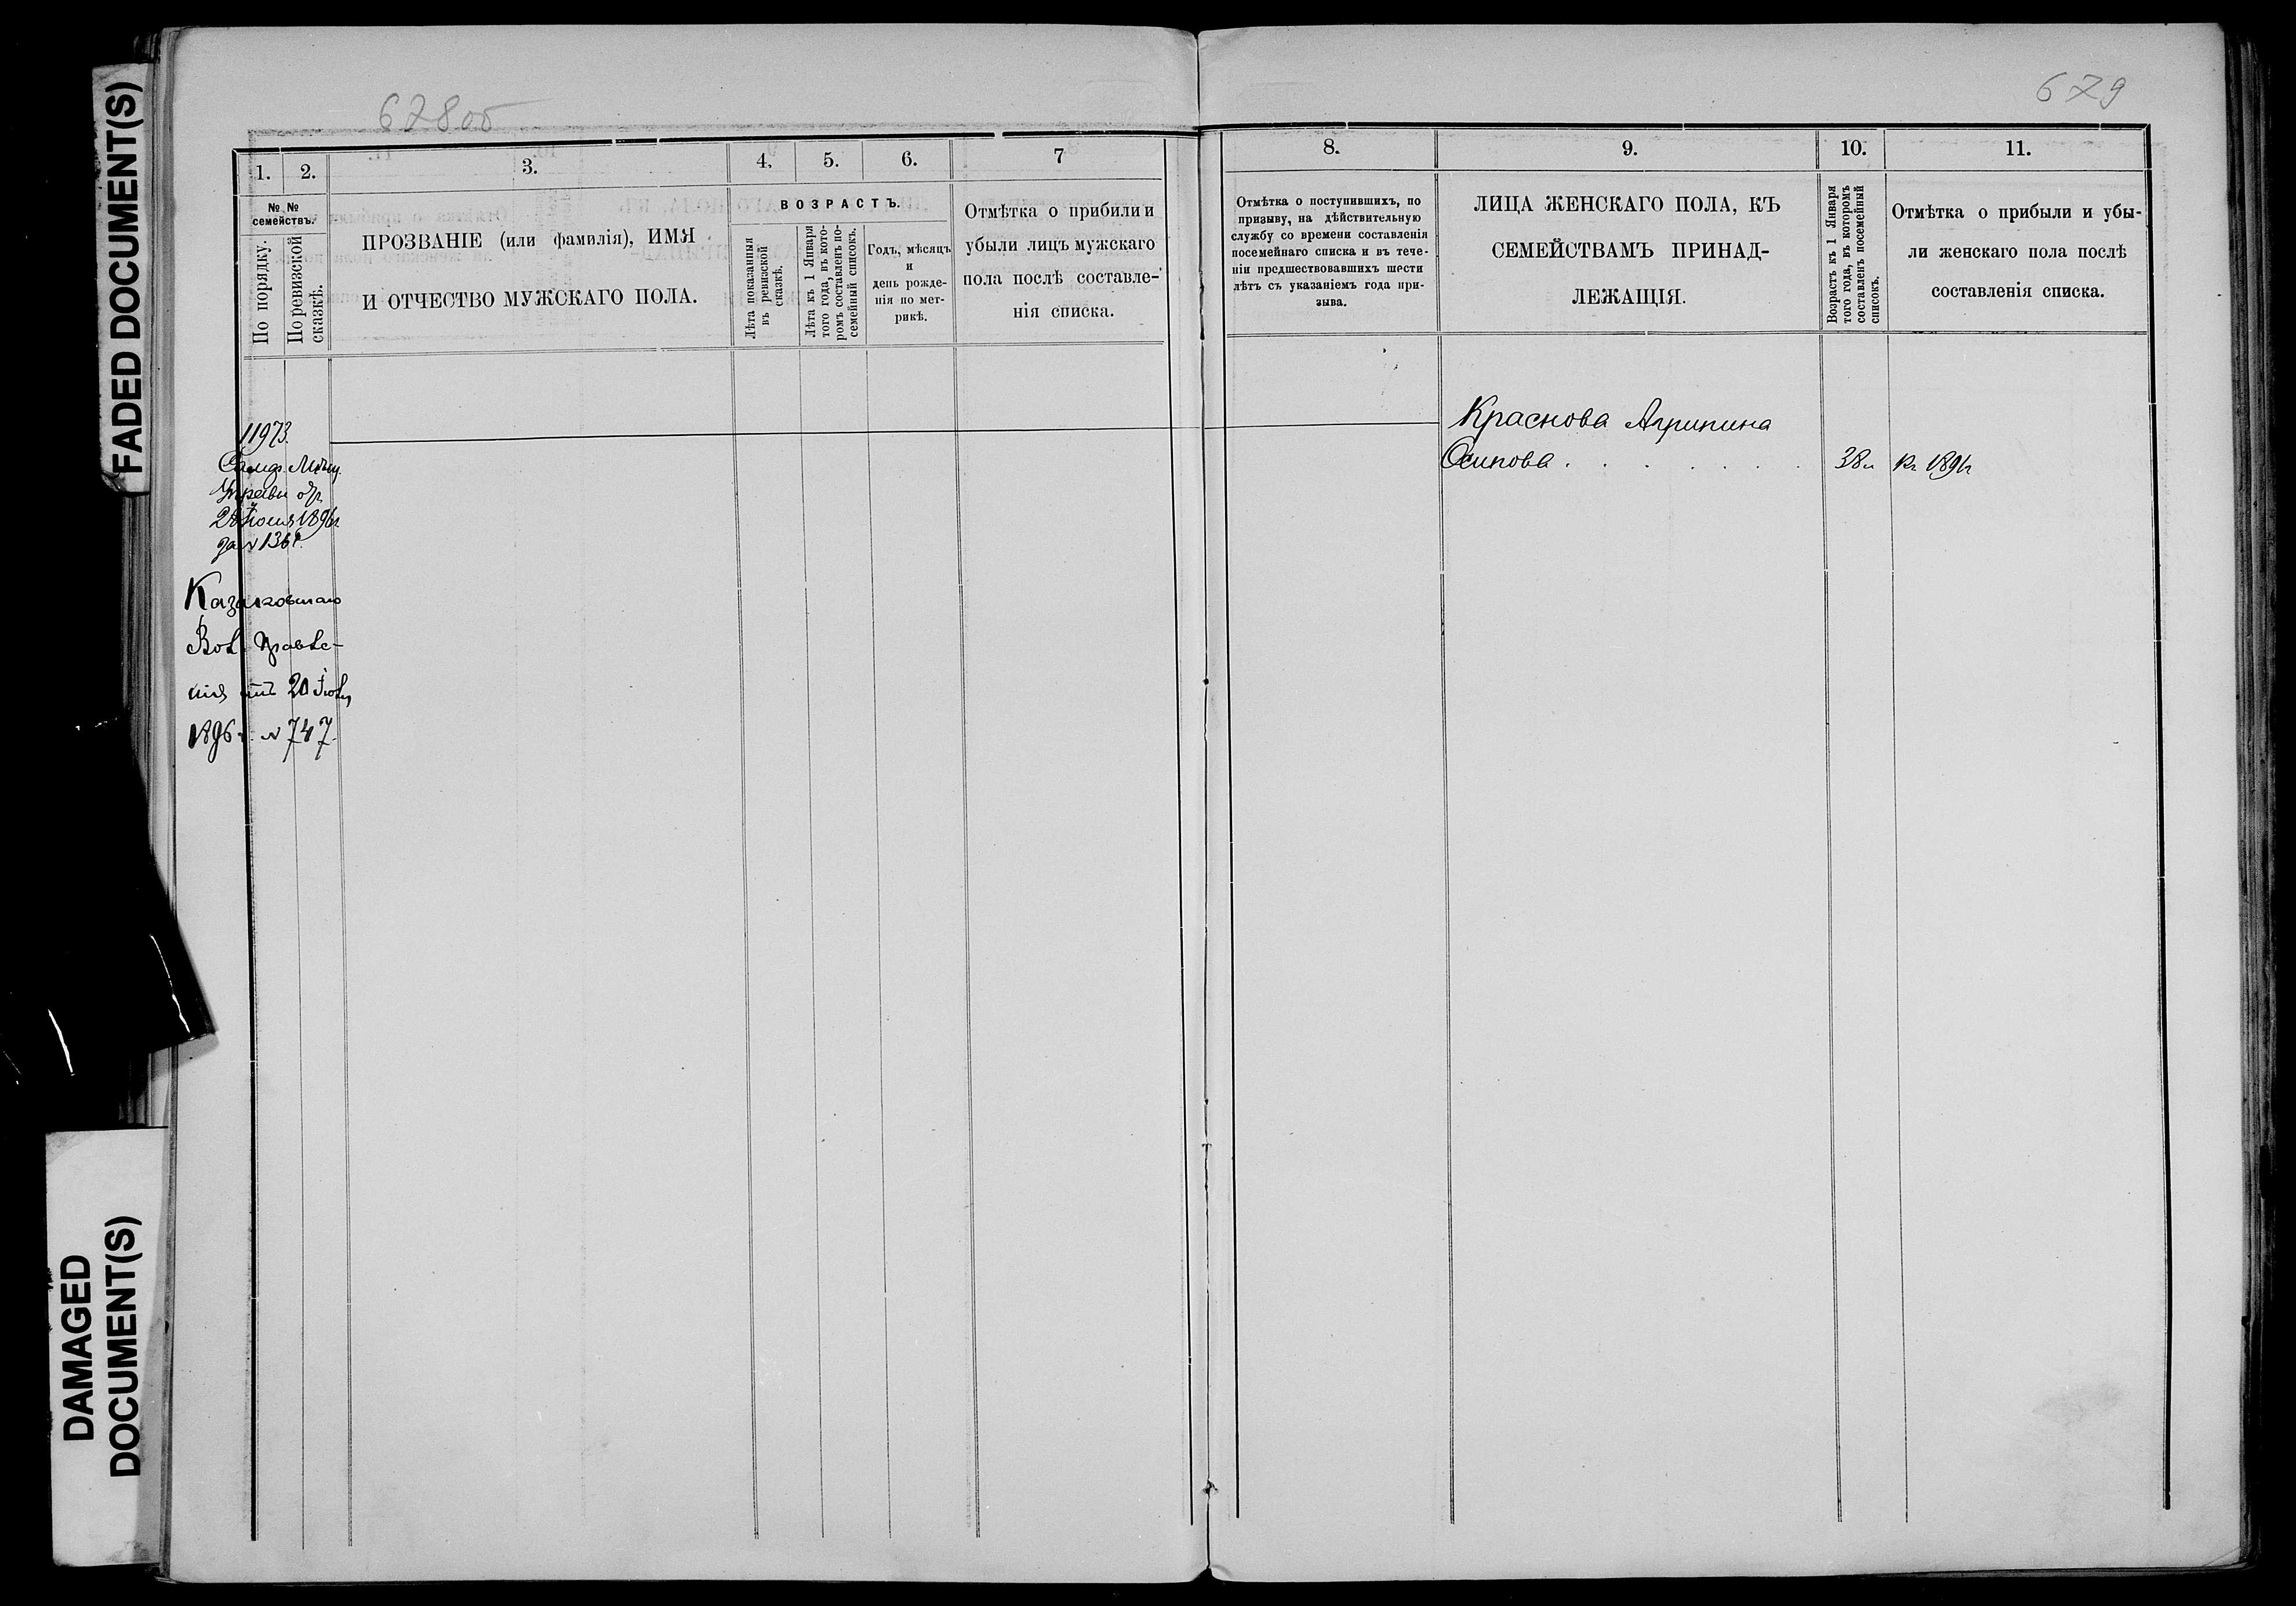 FADED DOCUMENT(S)
DAMAGED
DOCUMENT(S)
678об
1.
2.
3.
4.
5.
6.
7
№ №
семействъ.
По порядку.
По ревизской
сказкѣ.
ПРОЗВАНІЕ (или фамилія), ИМЯ
И ОТЧЕСТВО МУЖСКАГО ПОЛА.
ВОЗРАСТЪ.
Лѣта показанныя
въ ревизской
сказкѣ.
Лѣта къ 1 Января
того года, въ кото-
ромъ составленъ по-
семейный списокъ.
Годъ, мѣсяцъ
и
день рожде-
нія по мет-
рикѣ.
Отмѣтка о прибыли и
убыли лицъ мужскаго
пола послѣ составле-
нія списка.
11973.
Управы
28 1896г
за № 136
Казаковскаго
Вол. Правле-
нія отъ 20 Іюля
1896 г. № 747.
679
8.
9.
10.
11.
Отмѣтка о поступившихъ, по
призыву, на дѣйствительную
службу со времени составленія
посемейнаго списка и въ тече-
ніи предшествовавшихъ шести
лѣтъ съ указаніемъ года при-
зыва.
ЛИЦА ЖЕНСКАГО ПОЛА, КЪ
СЕМЕЙСТВАМЪ ПРИНАД-
ЛЕЖАЩІЯ.
Возрастъ къ 1 Января
того года, въ которомъ
составленъ посемейный
списокъ.
Отмѣтка о прибыли и убы-
ли женскаго пола послѣ
составленія списка.
Краснова Агрипина
Осипова . . . . . . . 38л